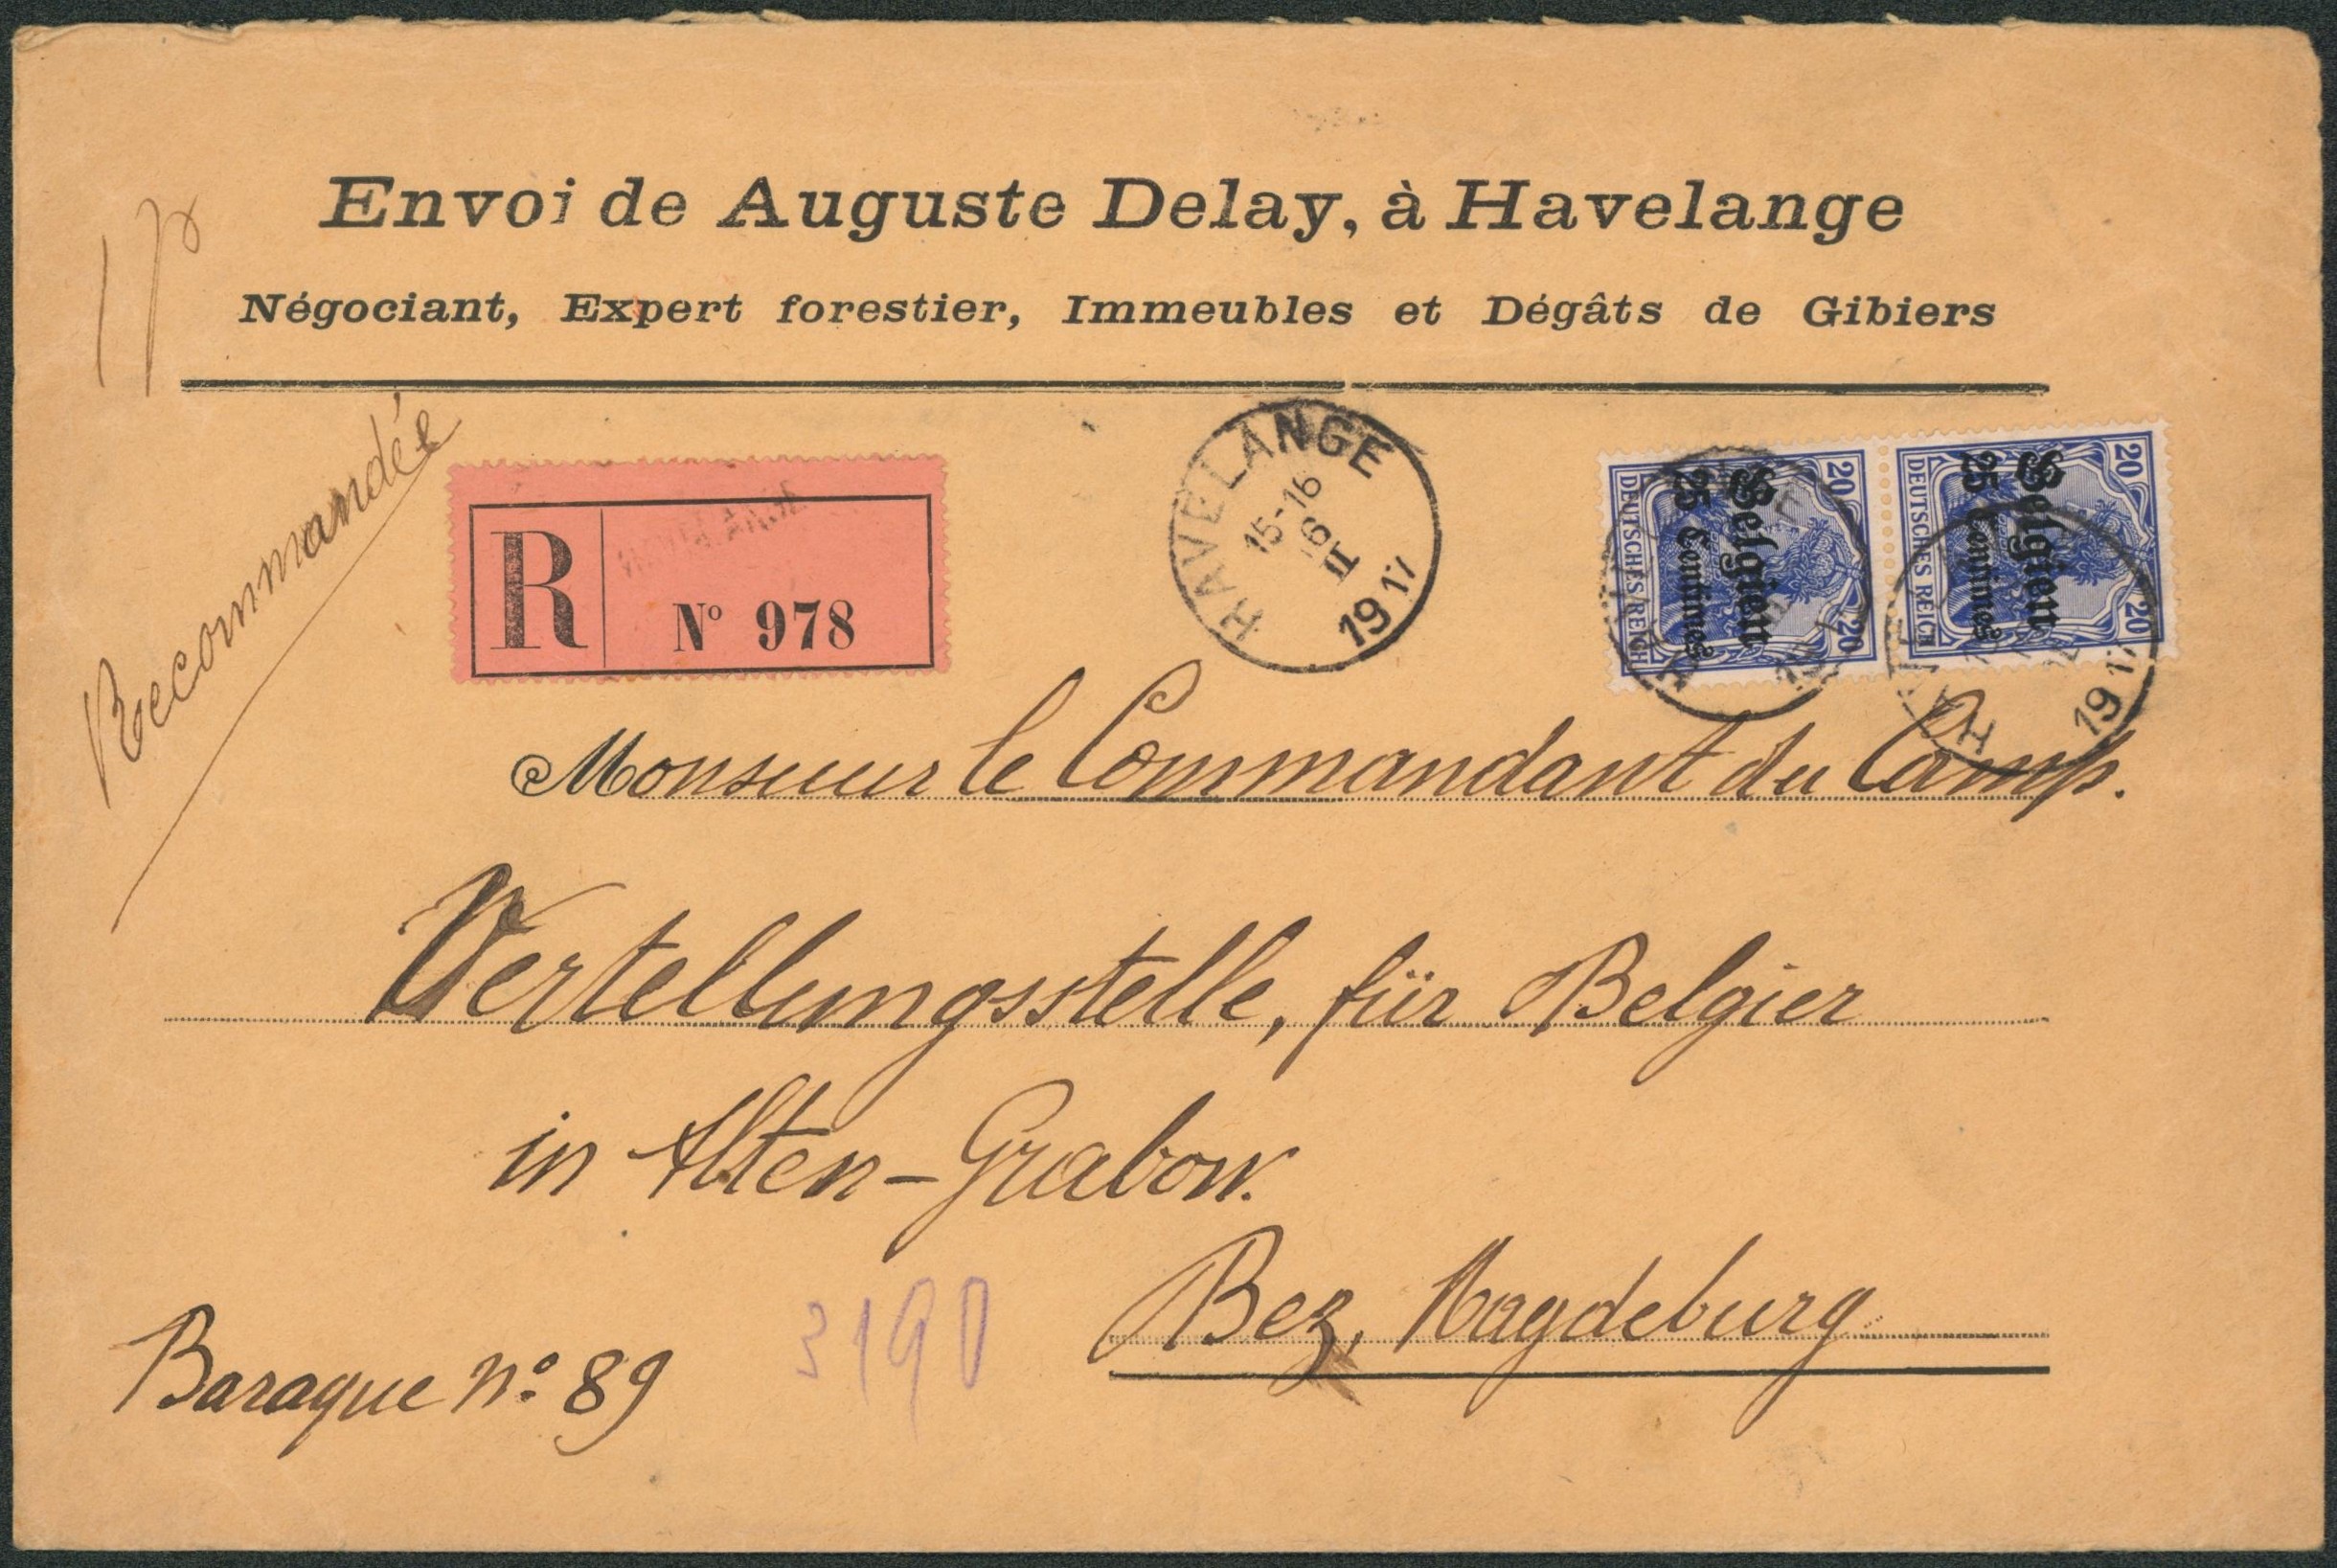 Envoi de Auguste Delay, à Havelange
Négociant, Expert forestier, Immeubles et Dégâts de Gibiers
Recommandée
R
Nº 978
HAVELANGE
15-16
6
II
1917
20 20
DEUTSCHES REICH
Belgien
25 Centimes
20 20
DEUTSCHES REICH
Belgien
25 Centimes
1917
Monsieur le Commandant du Camp.
Vertellungsstelle, für Belgier
in Alten-Grabow.
Bez, Magdeburg
Baraque Nº 89
3190